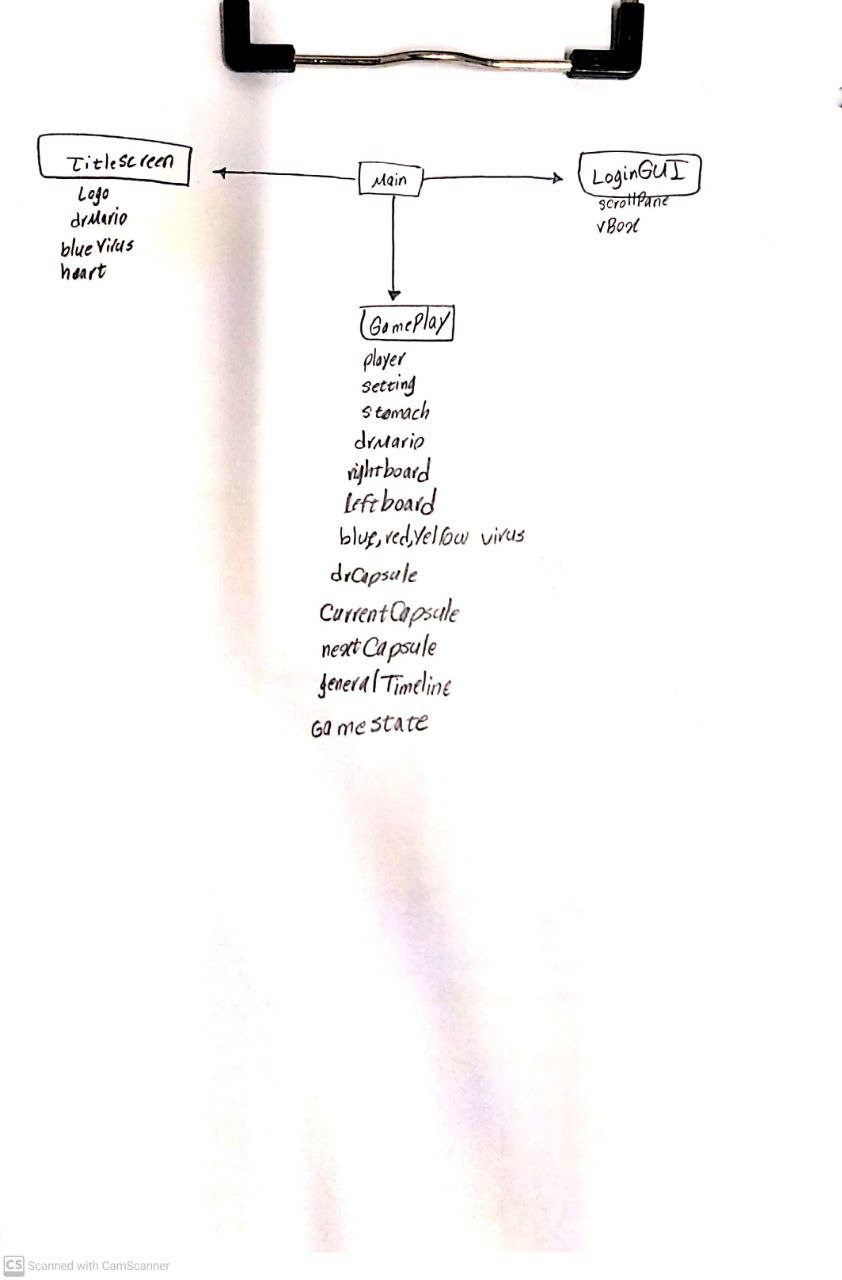 Titlescreen
Logo
drMario
blueVirus
heart
Main
LoginGUI
scrollPane
vBox
GamePlay
player
setting
stomach
drMario
rightboard
leftboard
blue,red,yellow virus
drCapsule
CurrentCapsule
nextCapsule
generalTimeline
Gamestate
CS Scanned with CamScanner